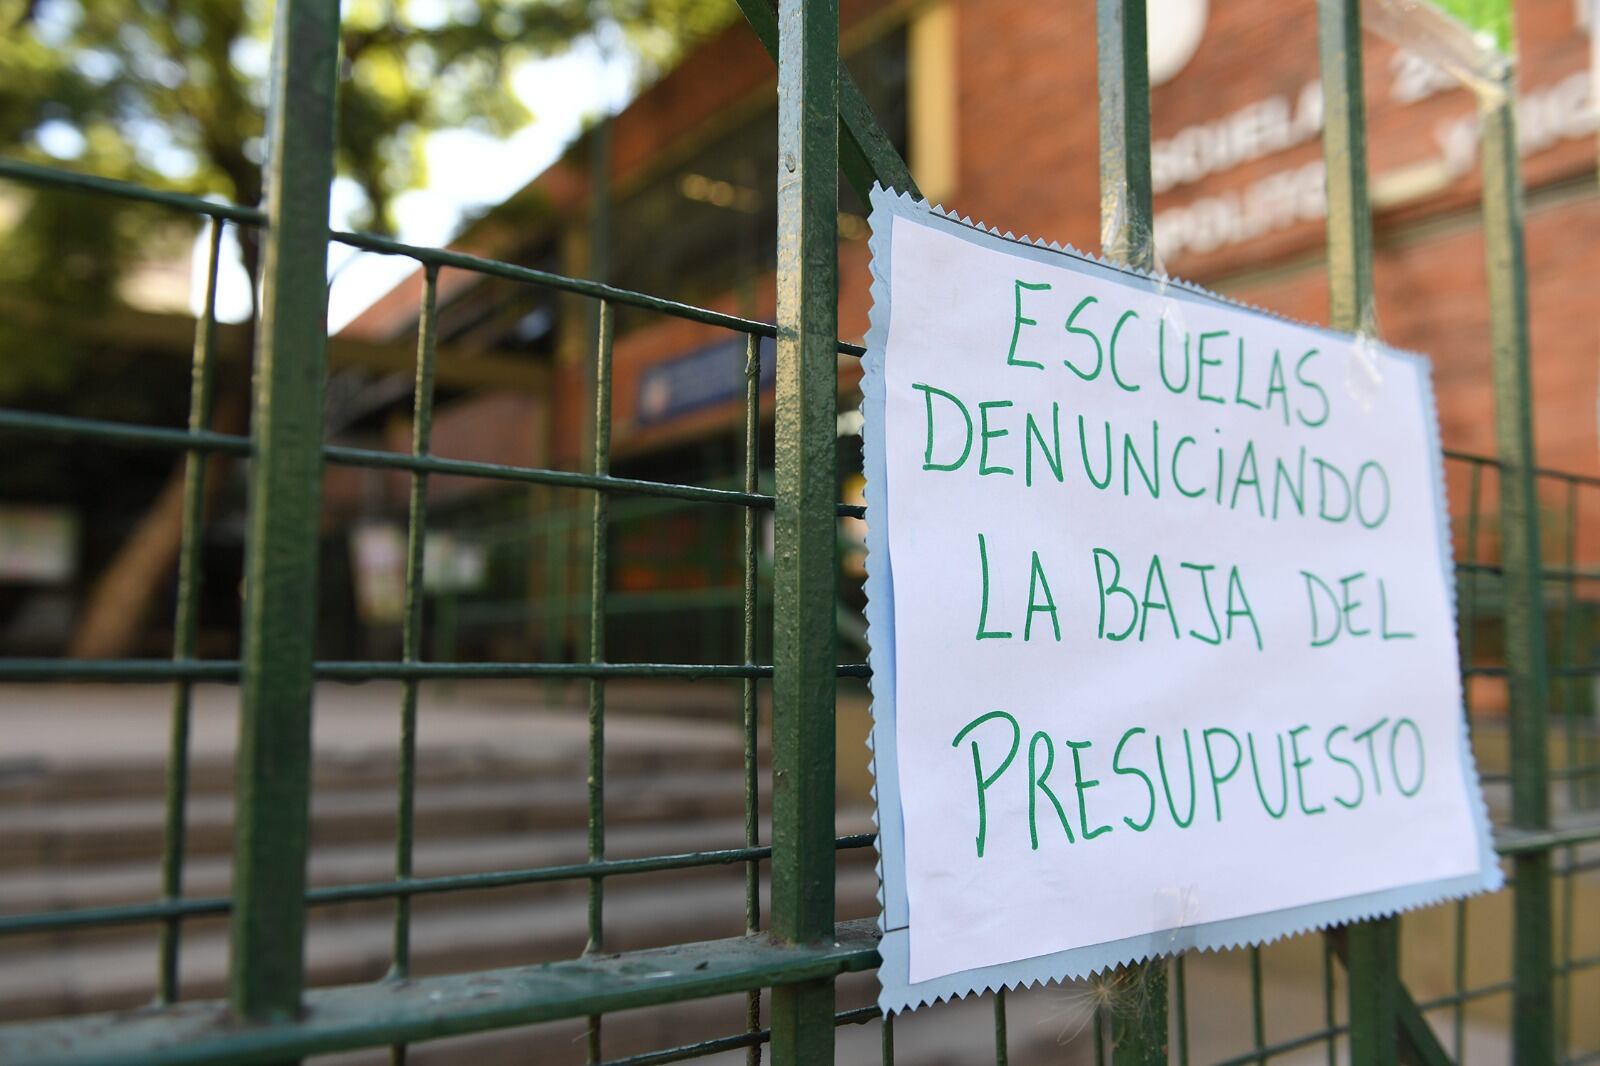 ESCUELAS
DENUNCiANDO
LA BAJA DEL
PRESUPUESTO